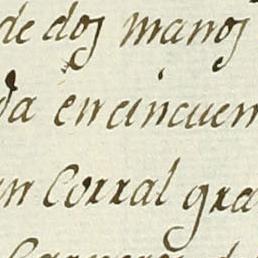 de dos manos
da en cincuen
un Corral gra